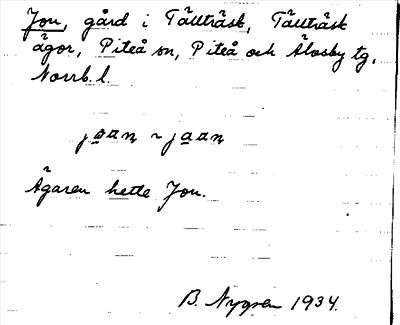 Jon, gård i Tällträsk, Tällträsk
ägor, Piteå sn, Piteå och Älvsby tg,
Norrb. l.
Ägaren hette Jon.
B. Nygren 1934.